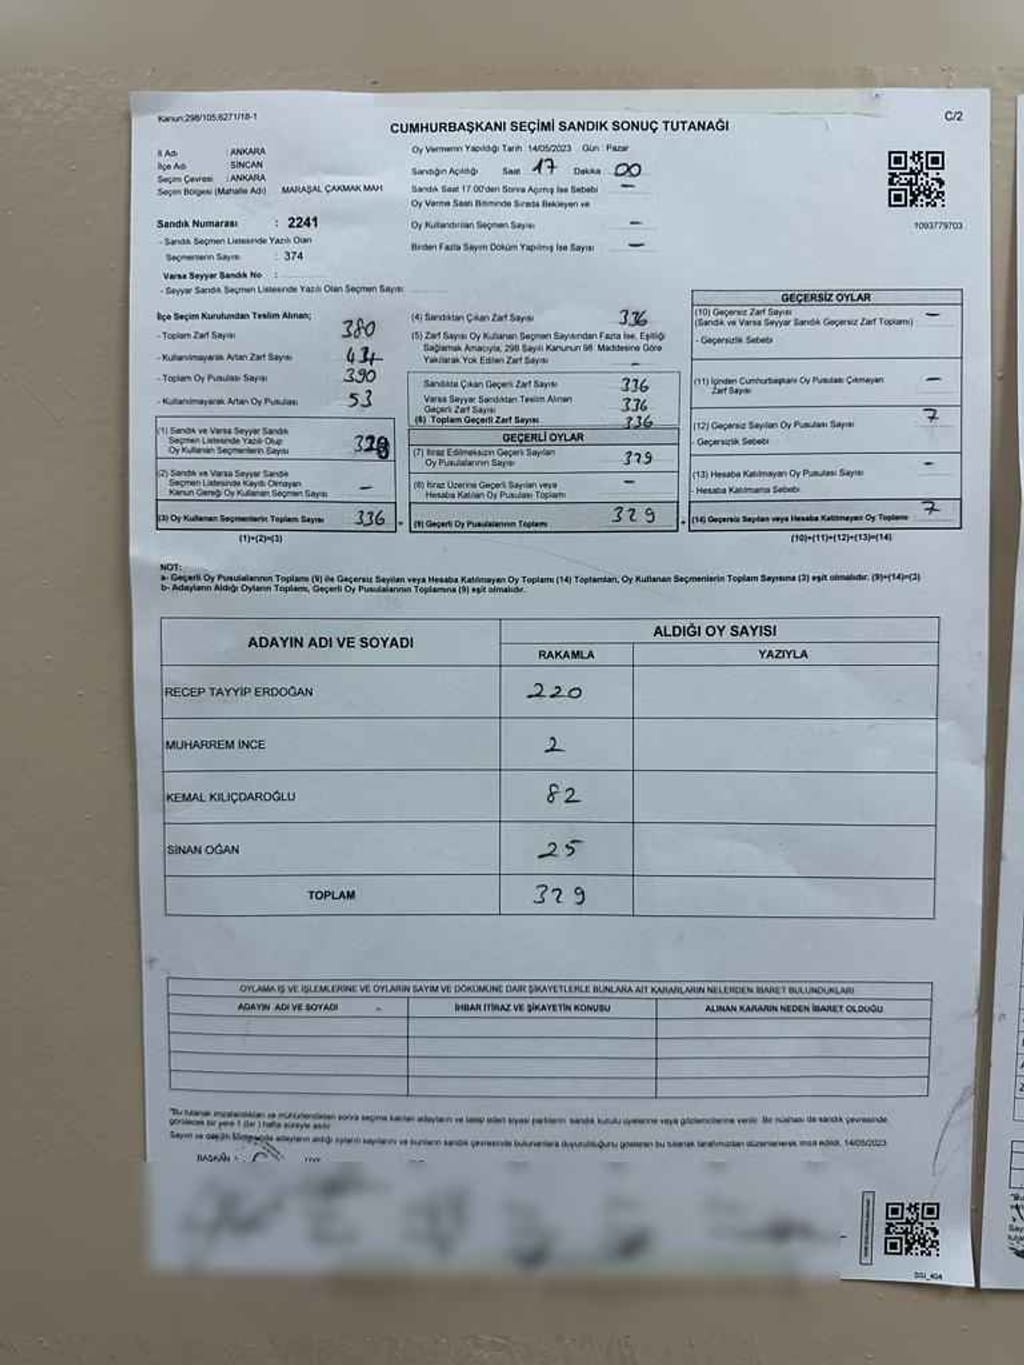 Kanun:298/105,6271/18-1
C/2
CUMHURBAŞKANI SEÇİMİ SANDIK SONUÇ TUTANAĞI
İl Adı : ANKARA
İlçe Adı : SİNCAN
Seçim Çevresi : ANKARA
Seçim Bölgesi (Mahalle Adı) MARAŞAL ÇAKMAK MAH
Sandık Numarası : 2241
- Sandık Seçmen Listesinde Yazılı Olan
Seçmenlerin Sayısı : 374
Varsa Seyyar Sandık No :
- Seyyar Sandık Seçmen Listesinde Yazılı Olan Seçmen Sayısı
Oy Vermenin Yapıldığı Tarih :14/05/2023 Gün : Pazar
Sandığın Açıldığı Saat 17 Dakika 00
Sandık Saat 17.00'den Sonra Açılmış İse Sebebi —
Oy Verme Saati Bitiminde Sırada Bekleyen ve
Oy Kullandırılan Seçmen Sayısı —
Birden Fazla Sayım Döküm Yapılmış İse Sayısı —
1093779703
İlçe Seçim Kurulundan Teslim Alınan;
- Toplam Zarf Sayısı 380
- Kullanılmayarak Artan Zarf Sayısı
- Toplam Oy Pusulası Sayısı 390
- Kullanılmayarak Artan Oy Pusulası 53
(1) Sandık ve Varsa Seyyar Sandık
Seçmen Listesinde Yazılı Olup
Oy Kullanan Seçmenlerin Sayısı
(2) Sandık ve Varsa Seyyar Sandık
Seçmen Listesinde Kayıtlı Olmayan
Kanun Gereği Oy Kullanan Seçmen Sayısı —
(3) Oy Kullanan Seçmenlerin Toplam Sayısı 336
(1)+(2)=(3)
(4) Sandıktan Çıkan Zarf Sayısı 336
(5) Zarf Sayısı Oy Kullanan Seçmen Sayısından Fazla İse, Eşitliği
Sağlamak Amacıyla, 298 Sayılı Kanunun 98. Maddesine Göre
Yakılarak Yok Edilen Zarf Sayısı —
Sandıkta Çıkan Geçerli Zarf Sayısı 336
Varsa Seyyar Sandıktan Teslim Alınan
Geçerli Zarf Sayısı 336
(6) Toplam Geçerli Zarf Sayısı 336
GEÇERLİ OYLAR
(7) İtiraz Edilmeksizin Geçerli Sayılan
Oy Pusulalarının Sayısı 329
(8) İtiraz Üzerine Geçerli Sayılan veya
Hesaba Katılan Oy Pusulası Toplamı —
= (9) Geçerli Oy Pusulalarının Toplamı 329
GEÇERSİZ OYLAR
(10) Geçersiz Zarf Sayısı —
(Sandık ve Varsa Seyyar Sandık Geçersiz Zarf Toplamı)
- Geçersizlik Sebebi
(11) İçinden Cumhurbaşkanı Oy Pusulası Çıkmayan
Zarf Sayısı —
(12) Geçersiz Sayılan Oy Pusulası Sayısı 7
- Geçersizlik Sebebi
(13) Hesaba Katılmayan Oy Pusulası Sayısı —
- Hesaba Katılmama Sebebi
+ (14) Geçersiz Sayılan veya Hesaba Katılmayan Oy Toplamı 7
(10)+(11)+(12)+(13)=(14)
NOT:
a- Geçerli Oy Pusulalarının Toplamı (9) ile Geçersiz Sayılan veya Hesaba Katılmayan Oy Toplamı (14) Toplamları, Oy Kullanan Seçmenlerin Toplam Sayısına (3) eşit olmalıdır. (9)+(14)=(3)
b- Adayların Aldığı Oyların Toplamı, Geçerli Oy Pusulalarının Toplamına (9) eşit olmalıdır.
ADAYIN ADI VE SOYADI
ALDIĞI OY SAYISI
RAKAMLA YAZIYLA
RECEP TAYYİP ERDOĞAN 220
MUHARREM İNCE 2
KEMAL KILIÇDAROĞLU 82
SİNAN OĞAN 25
TOPLAM 329
OYLAMA İŞ VE İŞLEMLERİNE VE OYLARIN SAYIM VE DÖKÜMÜNE DAİR ŞİKAYETLERLE BUNLARA AİT KARARLARIN NELERDEN İBARET BULUNDUKLARI
ADAYIN ADI VE SOYADI İHBAR İTİRAZ VE ŞİKAYETİN KONUSU ALINAN KARARIN NEDEN İBARET OLDUĞU
"Bu tutanak imzalandıktan ve mühürlendikten sonra seçime katılan adayların ve talep eden siyasi partilerin sandık kurulu üyelerine veya gözlemcilerine verilir. Bir nüshası da sandık çevresinde
görülecek bir yere 1 (bir) hafta süreyle asılır.
Sayım ve döküm sonucunda adayların aldığı oyların sayılarını ve bunların sandık çevresinde bulunanlara duyurulduğunu gösteren bu tutanak tarafımızdan düzenlenerek imza edildi. 14/05/2023
BAŞKAN